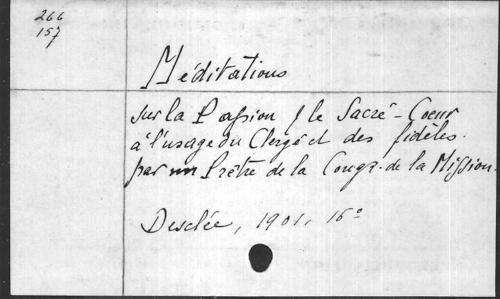 266
157
Méditations
sur la Passion & le Sacré-Coeur
à l'usage du Clergé et des fidèles.
par un Prêtre de la Congr. de la Mission.
Desclée, 1901, 16°